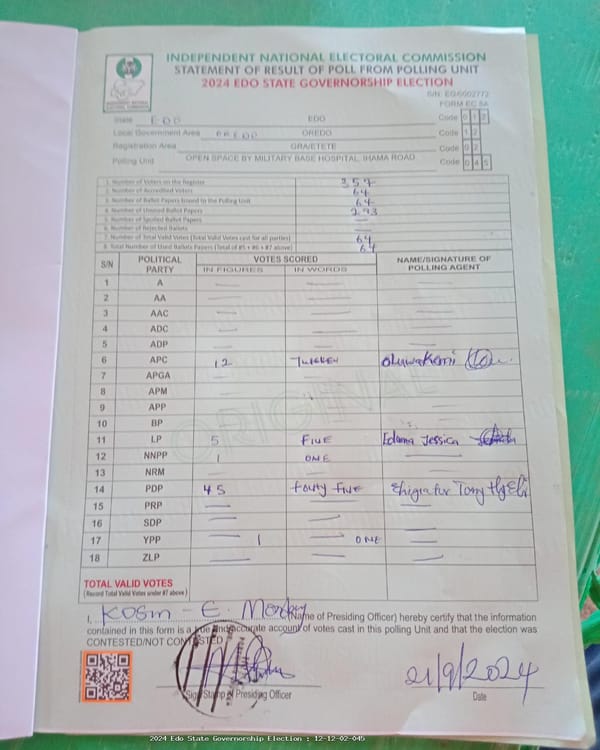 INDEPENDENT NATIONAL ELECTORAL COMMISSION
STATEMENT OF RESULT OF POLL FROM POLLING UNIT
2024 EDO STATE GOVERNORSHIP ELECTION
FORM EC 8A
State EDO EDO Code 0 1 2
Local Government Area OREDO OREDO Code 1 2
Registration Area GRA/ETETE Code 0 2
Polling Unit OPEN SPACE BY MILITARY BASE HOSPITAL, IHAMA ROAD Code 0 4 5
1. Number of Voters on the Register 357
2. Number of Accredited Voters 64
3. Number of Ballot Papers Issued to the Polling Unit 64
4. Number of Unused Ballot Papers 293
5. Number of Spoiled Ballot Papers —
6. Number of Rejected Ballots —
7. Number of Total Valid Votes (Total Valid Votes cast for all parties) 64
8. Total Number of Used Ballots Papers (Total of #5 + #6 + #7 above) 64
S/N POLITICAL PARTY VOTES SCORED NAME/SIGNATURE OF POLLING AGENT
IN FIGURES IN WORDS
1 A — —
2 AA — —
3 AAC — —
4 ADC — —
5 ADP — —
6 APC 12 Oluwakemi
7 APGA
8 APM
9 APP
10 BP
11 LP 5 FIVE Jessica
12 NNPP 1 ONE —
13 NRM — —
14 PDP 45 FOUTY FIVE Tony
15 PRP — — —
16 SDP — —
17 YPP — 1 ONE —
18 ZLP — — —
TOTAL VALID VOTES
(Record Total Valid Votes under #7 above)
I, E. (Name of Presiding Officer) hereby certify that the information
contained in this form is a true and accurate account of votes cast in this polling Unit and that the election was
CONTESTED/NOT CONTESTED
Sign/Stamp of Presiding Officer
21/9/2024
Date
ORIGINAL
2024 Edo State Governorship Election : 12-12-02-045